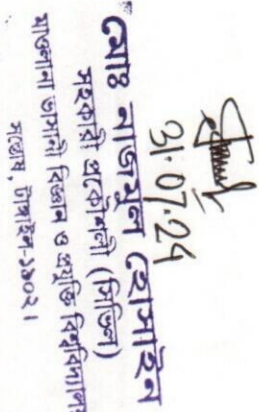 31.07.24
মোঃ নাজমুল হোসাইন
সহকারী প্রকৌশলী (সিভিল)
মাওলানা ভাসানী বিজ্ঞান ও প্রযুক্তি বিশ্ববিদ্যালয়
সন্তোষ, টাঙ্গাইল-১৯০২।